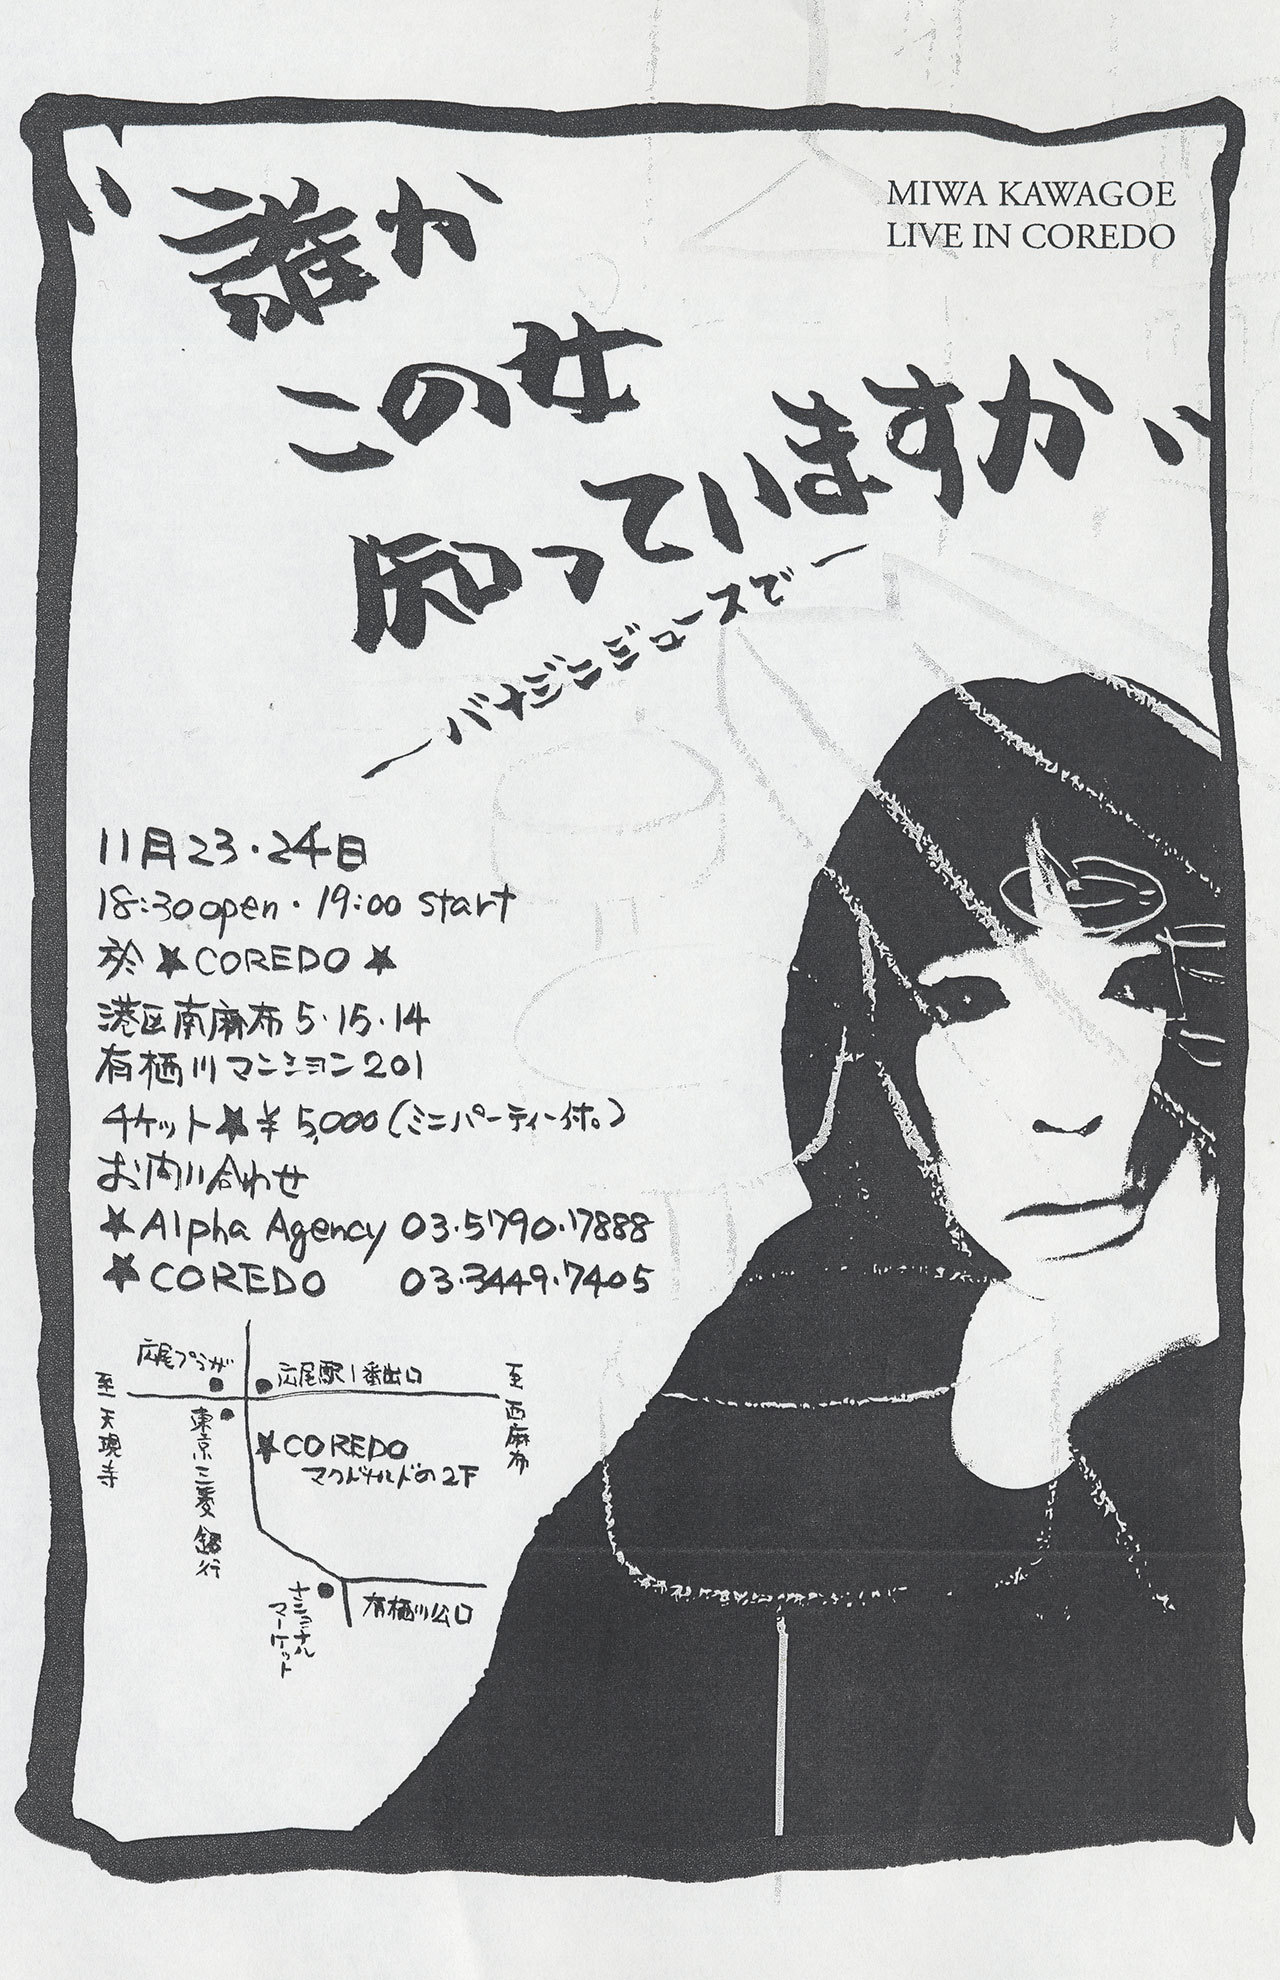 MIWA KAWAGOE
LIVE IN COREDO
"誰か
この女
知っていますか"
11月23・24日
18:30 open・19:00 start
於★COREDO★
港区南麻布5・15・14
有栖川マンション201
チケット★¥5,000(ミニパーティー付。)
お問い合わせ
★Alpha Agency 03・5790・7888
★COREDO 03・3449・7405
広尾プラザ
広尾駅1番出口
至天現寺
至西麻布
東京三菱銀行
★COREDO
マクドナルドの2F
ナショナル
マーケット
有栖川公口